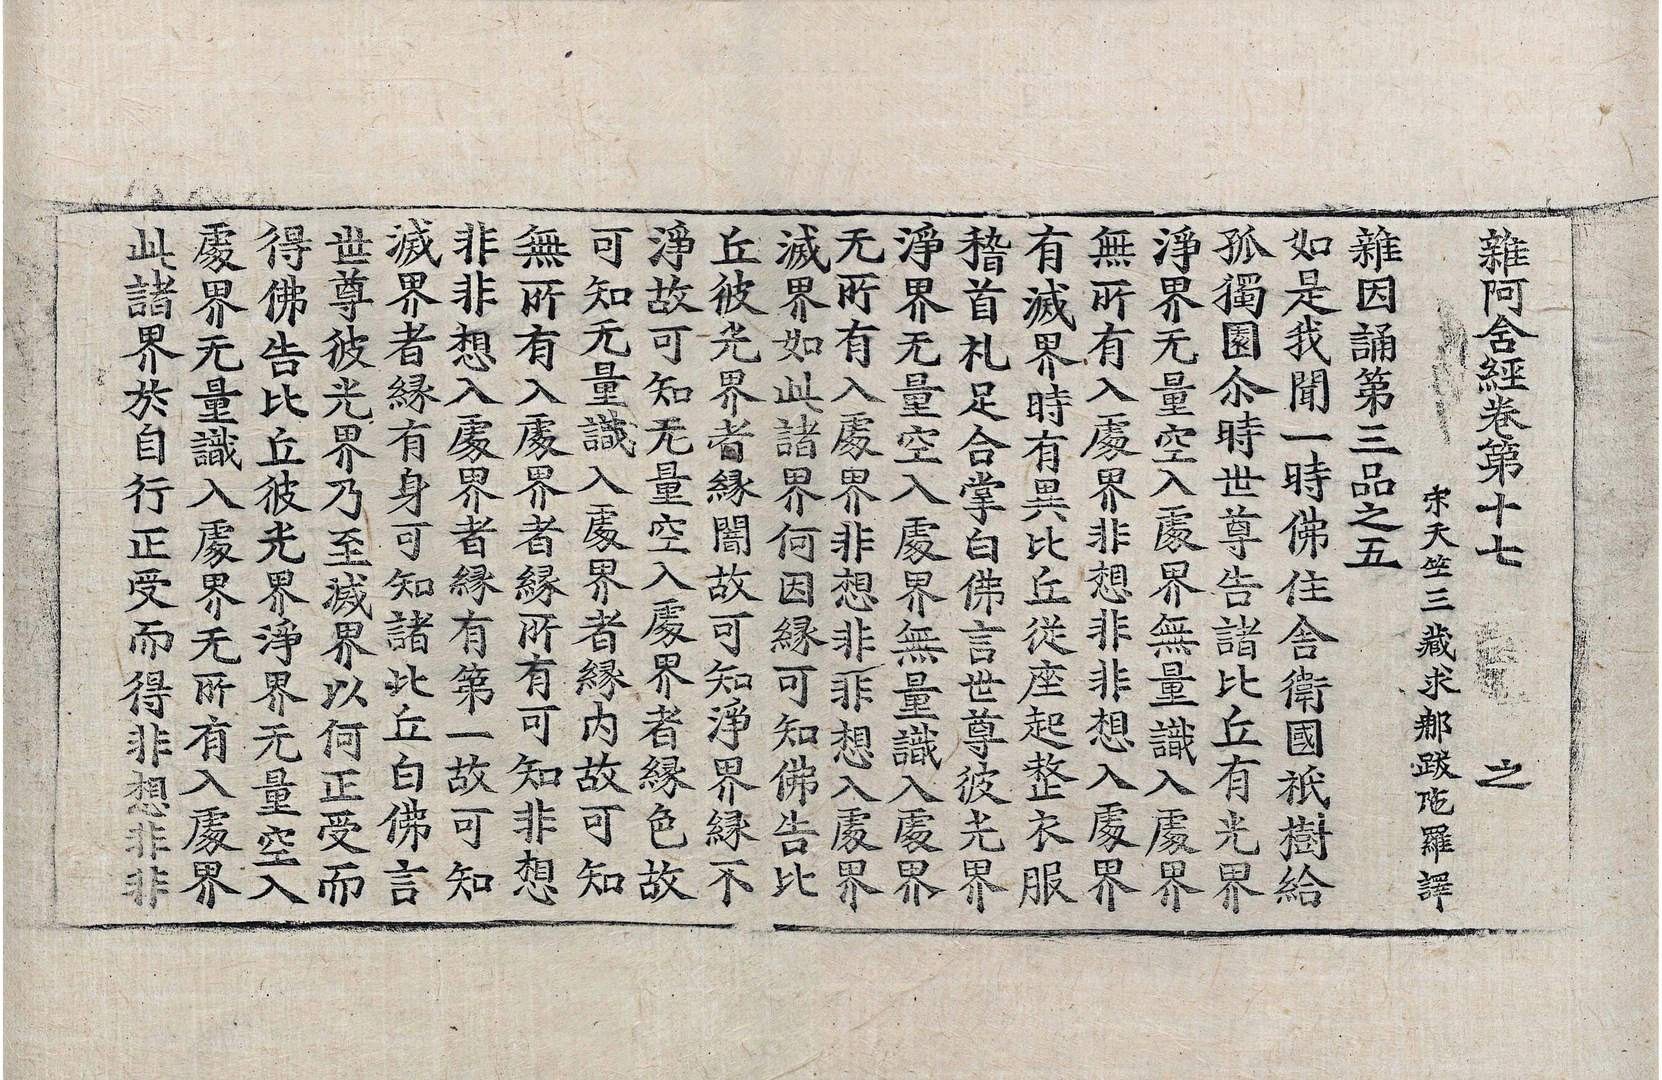 雜阿含經卷第十七 之
宋天竺三藏求郍跋陁羅譯
雜因誦第三品之五
如是我聞一時佛住舍衛國祇樹給
孤獨園尒時世尊告諸比丘有光界
淨界无量空入處界無量識入處界
無所有入處界非想非非想入處界
有滅界時有異比丘從座起整衣服
稽首礼足合掌白佛言世尊彼光界
淨界无量空入處界無量識入處界
无所有入處界非想非非想入處界
滅界如此諸界何因緣可知佛告比
丘彼光界者緣闇故可知淨界緣不
淨故可知无量空入處界者緣色故
可知无量識入處界者緣内故可知
無所有入處界者緣所有可知非想
非非想入處界者緣有第一故可知
滅界者緣有身可知諸比丘白佛言
世尊彼光界乃至滅界以何正受而
得佛告比丘彼光界淨界无量空入
處界无量識入處界无所有入處界
此諸界於自行正受而得非想非非